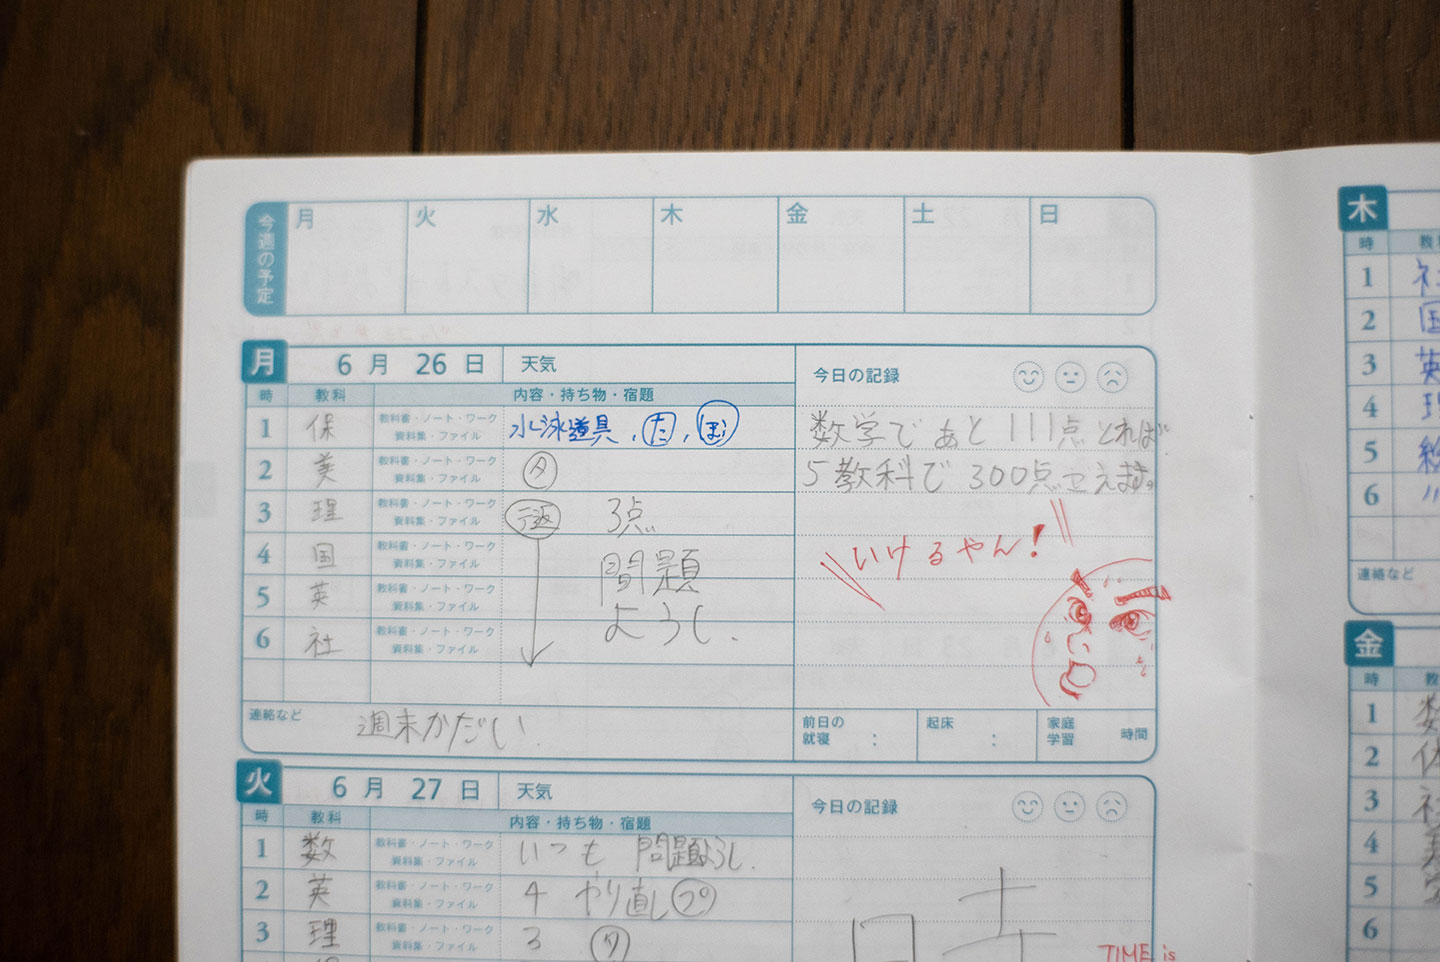 今週の予定 月 火 水 木 金 土 日
月 6月26日 天気
今日の記録
時 教科 内容・持ち物・宿題
1 保 教科書・ノート・ワーク 資料集・ファイル 水泳道具,た,ぼ
2 美 教科書・ノート・ワーク 資料集・ファイル タ
3 理 教科書・ノート・ワーク 資料集・ファイル テ返 3点
4 国 教科書・ノート・ワーク 資料集・ファイル 問題
5 英 教科書・ノート・ワーク 資料集・ファイル
6 社 教科書・ノート・ワーク 資料集・ファイル ようし.
数学であと111点とれば
5教科で300点こえます。
いけるやん!
連絡など 週末かだい.
前日の就寝 : 起床 : 家庭学習 時間
火 6月27日 天気
今日の記録
時 教科 内容・持ち物・宿題
1 数 教科書・ノート・ワーク 資料集・ファイル いつも 問題ようし.
2 英 教科書・ノート・ワーク 資料集・ファイル 4 やり直しプ
3 理 教科書・ノート・ワーク 資料集・ファイル 3 タ
TIME is
木
時
1 社
2 国
3 英
4 理
5
6 〃
連絡など
金
時
1 数
2 体
3 社
4
5
6